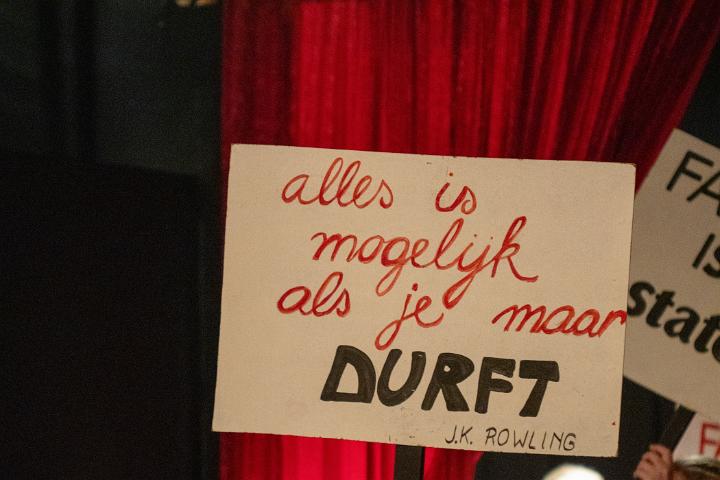 alles is
mogelijk
als je maar
DURFT
J.K. ROWLING
IS